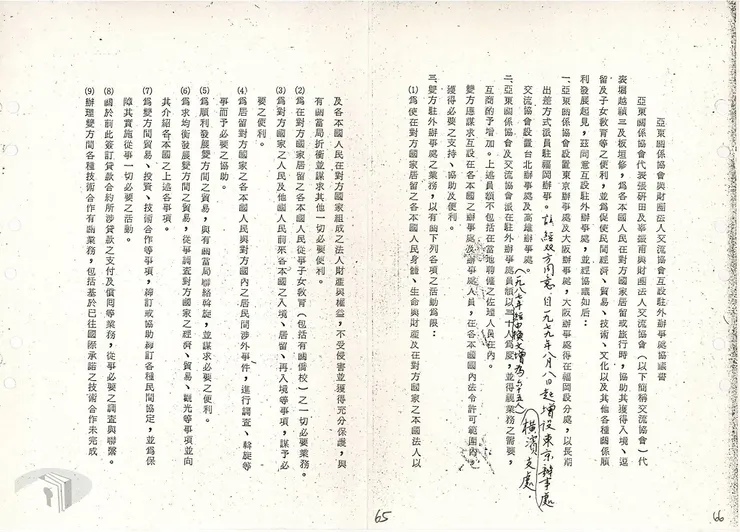 亞東關係協會與財團法人交流協會互設駐外辦事處協議書
亞東關係協會代表張研田及辜振甫與財團法人交流協會(以下簡稱交流協會)代
表堀越禎三及板垣修,為各本國人民在對方國家居留或旅行時,協助其獲得入境、逗
留及子女教育等之便利,並為促使民間經濟、貿易、技術、文化以及其他各種關係順
利發展起見,茲同意互設駐外辦事處,並經協議如后:
一、亞東關係協會設置東京辦事處及大阪辦事處,大阪辦事處得在福岡設分處,以長期
出差方式派員駐福岡辦事。該經双方同意,自一九七九年八月八日起增設東京辦事處
橫濱支處。
交流協會設置台北辦事處及高雄辦事處。
二、亞東關係協會及交流協會派在駐外辦事處員額以三十人為度,並得視業務之需要,
(一九八七年經由換文增為六十五人)
互商酌予增加。上述員額不包括在當地聘僱之佐理人員在內。
雙方應謀求互設在各本國之辦事處及辦事處人員,在各本國國內法令許可範圍內,
獲得必要之支持、協助及便利。
三、雙方駐外辦事處之業務,以有關下列各項之活動為限:
(1)為使在對方國家居留之各本國人民身體、生命與財產及在對方國家之本國法人以
66
及各本國人民在對方國家組成之法人財產與權益,不受侵害並獲得充分保護,與
有關當局折衝並謀求其他一切必要便利。
(2)為在對方國家居留之各本國人民從事子女教育(包括有關僑校)之一切必要業務。
(3)為對方國家之人民及他國人民前來各本國之入境、居留、再入境等事項,謀予必
要之便利。
(4)為居留對方國家之各本國人民與對方國內之居民間涉外事件,進行調查、斡旋等
事而予必要之協助。
(5)為順利發展雙方間之貿易,與有關當局聯絡斡旋,並謀求必要之便利。
(6)為求均衡發展雙方間之貿易,從事調查對方國家之經濟、貿易、觀光等事項並向
其介紹各本國之上述各事項。
(7)為雙方間貿易、投資、技術合作等事項,締訂或協助締訂各種民間協定,並為保
障其實施從事一切必要之活動。
(8)關於前此簽訂貸款合約所涉貸款之支付及償還等業務,從事必要之調查與聯繫。
(9)辦理雙方間各種技術合作有關業務,包括基於已往國際承諾之技術合作未完成
65